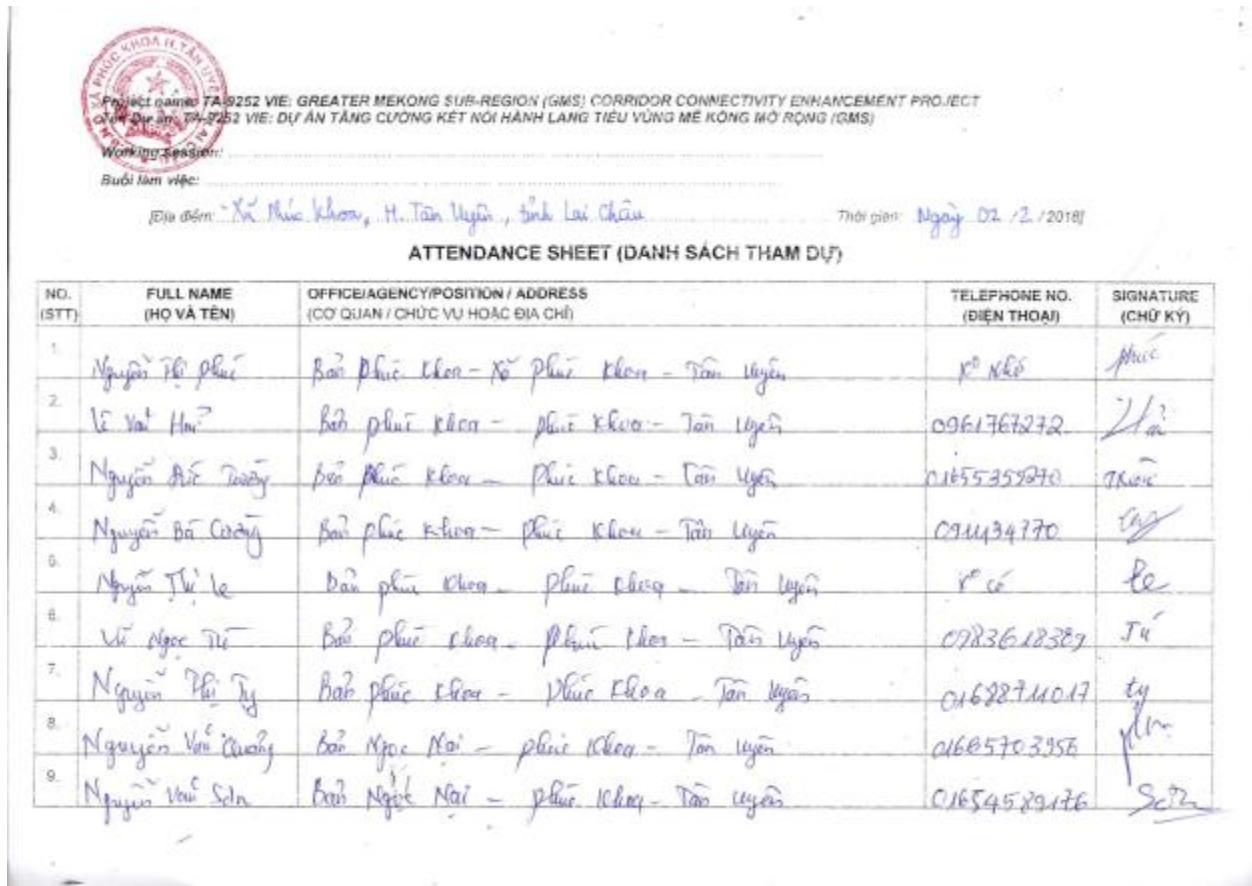 XÃ PHÚC KHOA H. TÂN UYÊN
Project name: TA-9252 VIE: GREATER MEKONG SUB-REGION (GMS) CORRIDOR CONNECTIVITY ENHANCEMENT PROJECT
Tên Dự án: TA-9252 VIE: DỰ ÁN TĂNG CƯỜNG KẾT NỐI HÀNH LANG TIỂU VÙNG MÊ KÔNG MỞ RỘNG (GMS)
Working session:
Buổi làm việc:
[Địa điểm: Xã Phúc Khoa, H. Tân Uyên, tỉnh Lai Châu Thời gian: Ngày 02 /2 /2018]
ATTENDANCE SHEET (DANH SÁCH THAM DỰ)
NO. (STT) FULL NAME (HỌ VÀ TÊN) OFFICE/AGENCY/POSITION / ADDRESS (CƠ QUAN / CHỨC VỤ HOẶC ĐỊA CHỈ) TELEPHONE NO. (ĐIỆN THOẠI) SIGNATURE (CHỮ KÝ)
1. Nguyễn Thị Phúc Bản Phúc Khoa - Xã Phúc Khoa - Tân Uyên K° Nhớ Phúc
2. Vũ Văn Hải Bản phúc Khoa - phúc Khoa - Tân Uyên 0961767272 Hải
3. Nguyễn Bản Phúc Khoa - Phúc Khoa - Tân Uyên 01655359270
4. Nguyễn Bá Cường Bản phúc Khoa - Phúc Khoa - Tân Uyên
5. Nguyễn Thị Le Bản phúc Khoa - phúc Khoa - Tân Uyên K° có Le
6. Vũ Ngọc Tú Bản phúc Khoa - phúc Khoa - Tân Uyên 0983618389 Tú
7. Nguyễn Thị Ty Bản phúc Khoa - Phúc Khoa - Tân Uyên ty
8. Nguyễn Văn Bản Ngọc Nại - phúc Khoa - Tân Uyên
9. Nguyễn Văn Sơn Bản Ngọc Nại - phúc Khoa - Tân Uyên 01654589176 Sơn